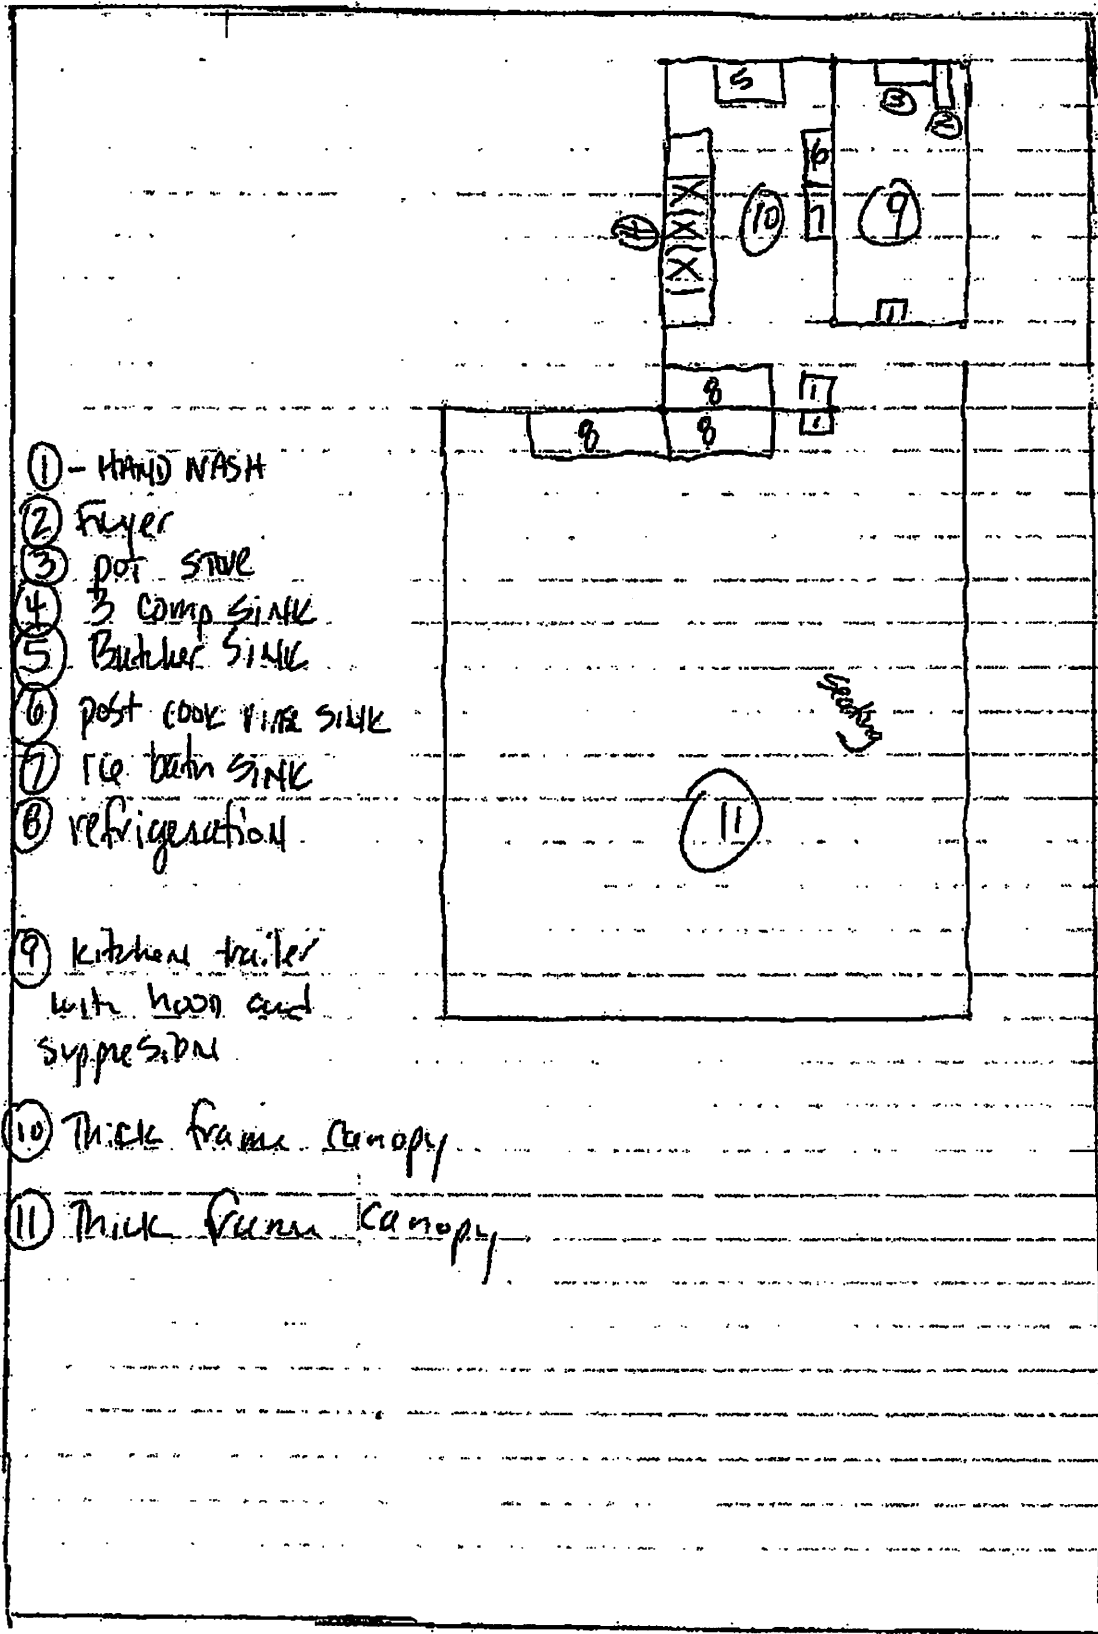 5
3
2
6
4
10
7
9
1
8
1
8
8
1
① - HAND WASH
② Fryer
③ pot stove
④ 3 comp SiNK
⑤ Butcher SiNK
⑥ post cook rinse SiNK
⑦ ice bath SiNK
⑧ refrigeration
Seating
11
⑨ kitchen trailer
with hood and
suppresion
⑩ Thick frame canopy
⑪ Thick frame canopy